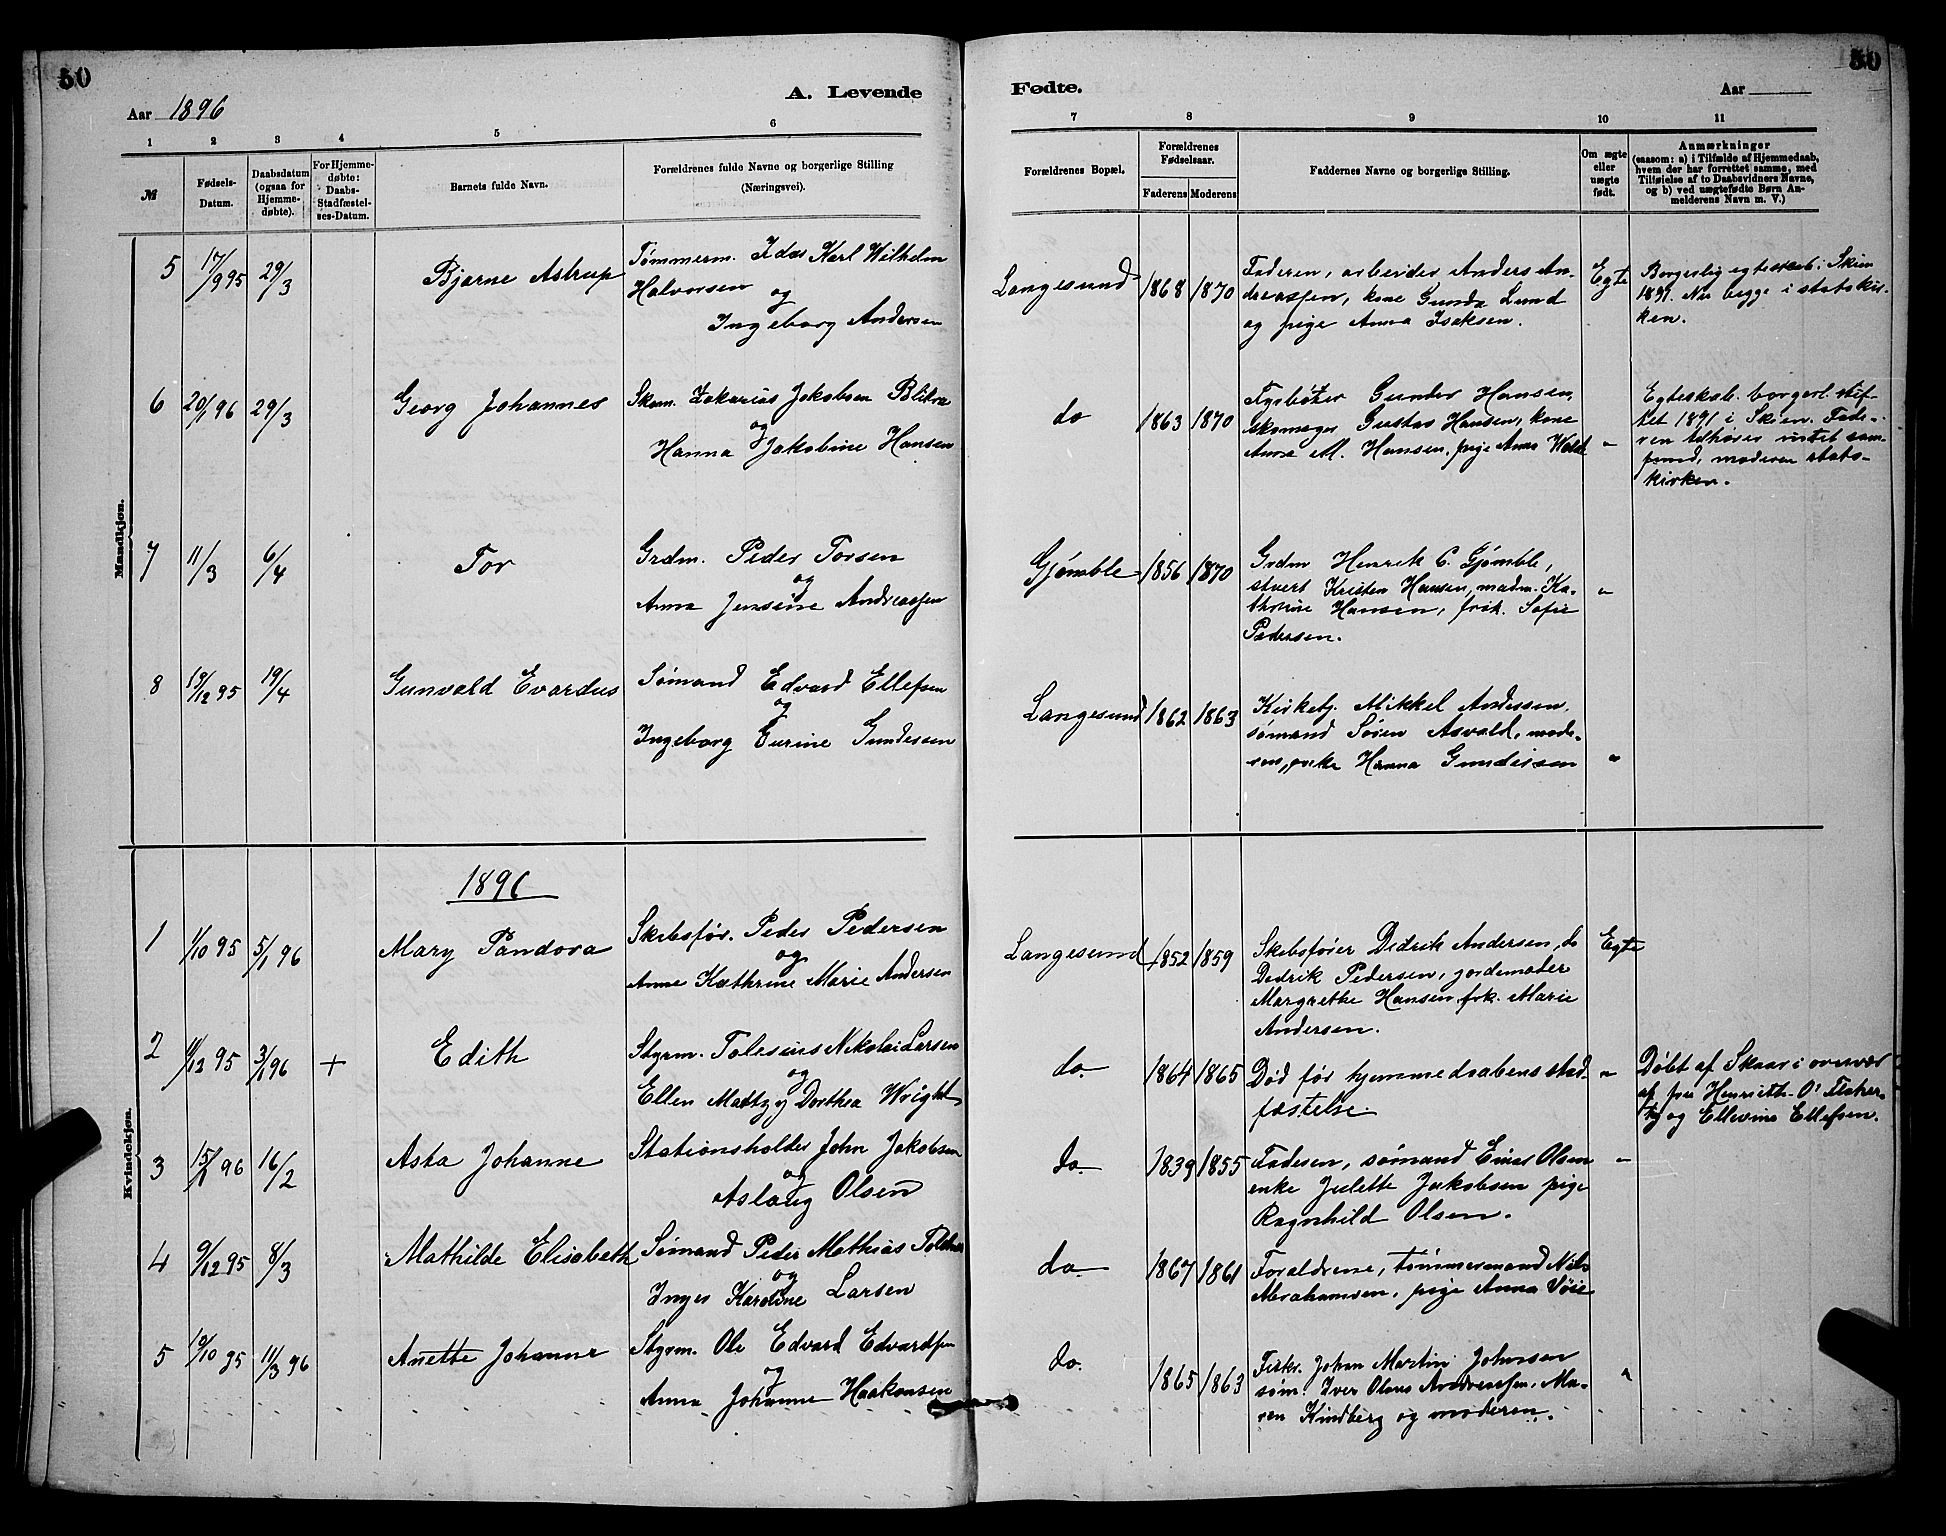 50
50
Aar 1896
A. Levende
Fødte.
Aar
1 2 3 4 5 6 7 8 9 10 11
№
Fødsels-
Datum.
Daabsdatum
(ogsaa for
Hjemme-
døbte).
For Hjemme-
døbte:
Daabs-
Stadfæstel-
ses-Datum.
Barnets fulde Navn.
Forældrenes fulde Navne og borgerlige Stilling
(Næringsvei).
Forældrenes Bopæl.
Forældrenes
Fødselsaar.
Faderens Moderens
Faddernes Navne og borgerlige Stilling.
Om ægte
eller
uægte
født.
Anmærkninger
(saasom: a) i Tilfælde af Hjemmedaab,
hvem der har forrettet samme, med
Tilføielse af to Daabsvidners Navne,
og b) ved uægtefødte Børn An-
melderens Navn m. V.)
Mandkjøn.
5
17/9 95
29/3
Bjarne Astrup
Tømmerm. Karl Wilhelm
Halvorsen
og
Ingeborg Andersen
Langesund
1868
1870
Faderen, arbeider Anders An-
dreassen, kone Gunda Lund
og pige Anna Isaksen.
Egte
Borgerlig egteskab. Skien
1891. Nu begge i statskir-
ken.
6
20/1 96
29/3
Georg Johannes
Skom. Zakarias Jakobsen Blikra
og
Hanna Jakobine Hansen
do
1863
1870
Fyrbøter Gunder Hansen,
skomager Gustav Hansen, kone
Anna M. Hansen, pige Anna
"
Egteskab. borgerl. stif-
tet 1891 i Skien. Fade-
ren tilhører intet sam-
fund, moderen stats-
kirken.
7
11/3
6/4
Tor
Grdm. Peder Torsen
og
Anna Jensine Andreassen
Gjømble
1856
1870
Grdm Henrik C. Gjømble,
stuert Kristen Hansen, madm. Ka-
thrine Hansen, frøk. Sofie
Pedersen.
"
8
19/12 95
19/4
Gunvald Evardus
Sømand Edvard Ellefsen
og
Ingeborg Gurine Gundersen
Langesund
1862
1863
Kirketj. Mikkel Anderssen,
sømand Søren Asvald, mode-
ren, enke Hanna Gundersen
"
Kvindekjøn.
1896
1
1/10 95
5/1 96
Mary Pandora
Skibsfør. Peder Pedersen
og
Anne Kathrine Marie Andersen
Langesund
1852
1859
Skibsfører Didrik Andersen, do
Didrik Pedersen, jordemoder
Margrethe Hansen, frk. Marie
Andersen.
Egte
2
11/12 95
3/1 96
+
Edith
Styrm. Nikolai Larsen
og
Ellen Mattzy Dorthea Wright
do.
1864
1865
Død før hjemmedaabens stad-
fæstelse
"
Døbt af Skaar i overvær
af fru Henriette O'
og Ellevine Ellefsen.
3
15/1 96
16/2
Asta Johanne
Stationsholder John Jakobsen
og
Aslaug Olsen
do.
1839
1855
Faderen, sømand Einar Olsen
enke Julette Jakobsen pige
Ragnhild Olsen.
"
4
9/12 95
8/3
Mathilde Elisabeth
Sømand Peder Mathias
og
Inger Karoline Larsen
do
1867
1861
Forældrene, tømmermand Nils
Abrahamsen, pige Anna Vøie
5
10/10 95
11/3 96
Anette Johanne
Styrm. Ole Edvard Edvardsen
og
Anna Johanne Haakonsen
do.
1865
1863
Fisker. Johan Martin Johnsen
søm. Iver Olaus Andreassen, Ma-
ren Kindberg og moderen.
"